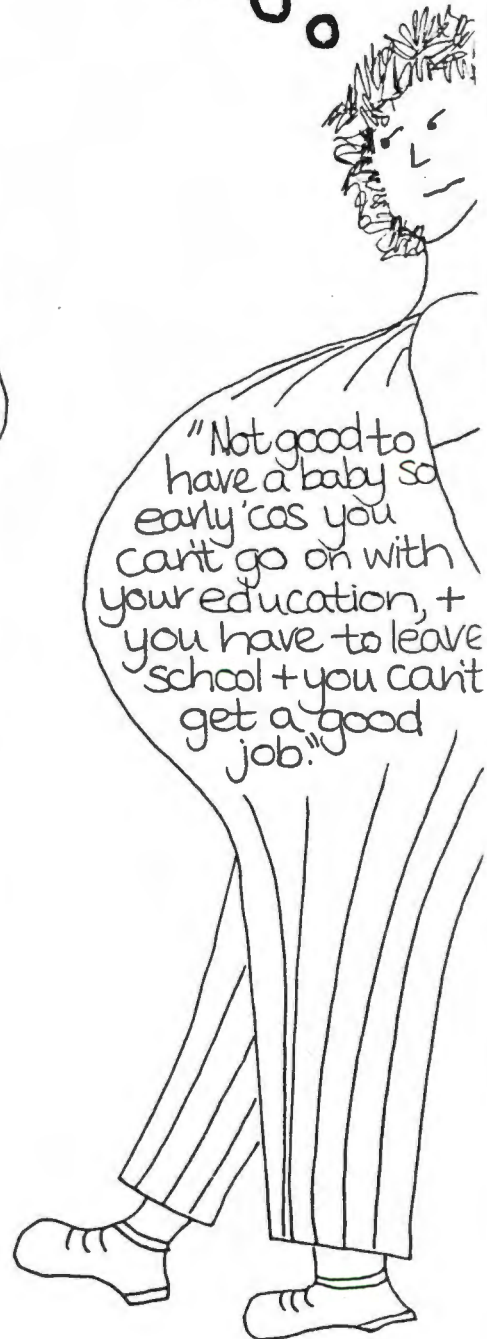 "Not good to
have a baby so
early 'cos you
can't go on with
your education, +
you have to leave
school + you can't
get a good
job."